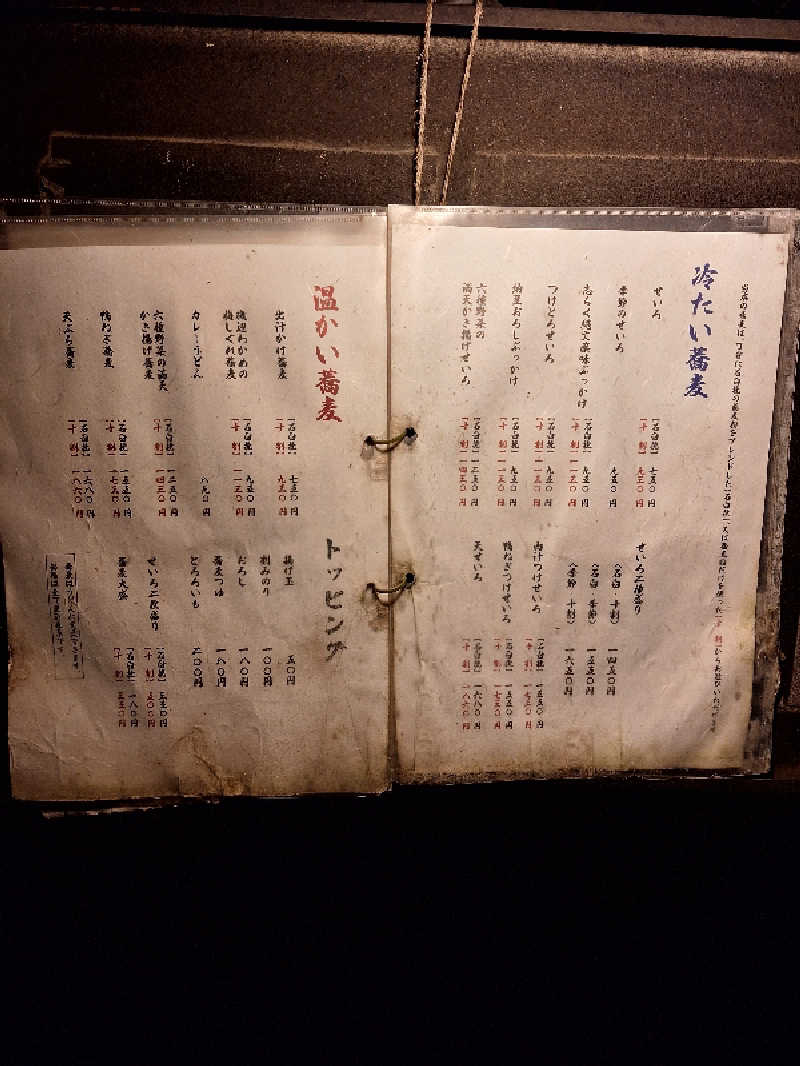 冷たい蕎麦
せいろ
［石臼挽］七五〇円
［十割］九五〇円
季節のせいろ
九五〇円
［石臼挽］九五〇円
［十割］一一五〇円
つけとろせいろ
［石臼挽］九五〇円
［十割］一一五〇円
納豆おろしぶっかけ
［石臼挽］九五〇円
［十割］一一五〇円
六種野菜の
満天かき揚げせいろ
［石臼挽］一二五〇円
［十割］一四五〇円
せいろ二段盛り
（石臼・十割）
一四五〇円
（石臼・季節）
一五五〇円
（季節・十割）
一六五〇円
肉汁つけせいろ
［石臼挽］
［十割］
鴨ねぎつけせいろ
［石臼挽］一五五〇円
［十割］一七五〇円
天せいろ
［石臼挽］一六八〇円
［十割］一八六〇円
温かい蕎麦
出汁かけ蕎麦
［石臼挽］七五〇円
［十割］九五〇円
磯辺わかめの
梅しぐれ蕎麦
［石臼挽］九五〇円
［十割］一一五〇円
カレーうどん
六種野菜の満天
かき揚げ蕎麦
［石臼挽］一二五〇円
［十割］一四五〇円
鴨ねぎ蕎麦
［石臼挽］一五五〇円
［十割］一七五〇円
天ぷら蕎麦
［石臼挽］一六八〇円
［十割］一八六〇円
トッピング
揚げ玉
五〇円
刻みのり
一〇〇円
おろし
一八〇円
蕎麦つゆ
一八〇円
とろろいも
二〇〇円
せいろ二段盛り
［石臼挽］
［十割］
蕎麦大盛
［石臼挽］
［十割］